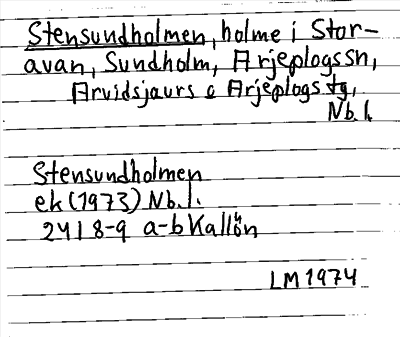 Stensundholmen, holme i Stor-
avan, Sundholm, Arjeplogs sn,
Arvidsjaurs o Arjeplogs tg,
Nb.l.
Stensundholmen
ek (1973) Nb.l.
24I 8-9 a-b Kallön
LM 1974